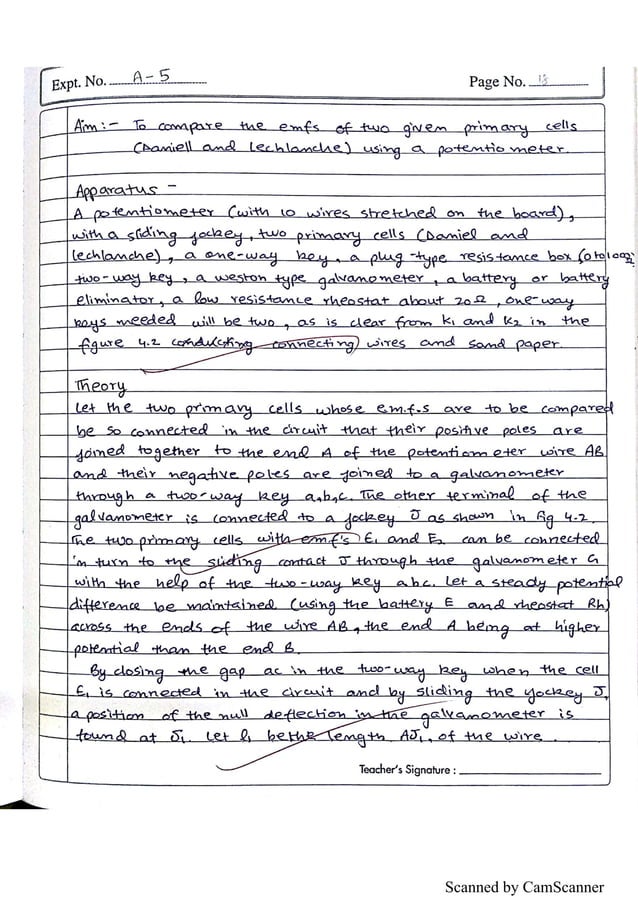 Expt. No. A-5
Page No. 18
Aim :- To compare the emfs of two given primary cells
(Daniell and Lechlanche) using a potentiometer.
Apparatus -
A potentiometer (with 10 wires stretched on the board),
with a sliding jockey, two primary cells (Daniel and
lechlanche), a one-way key, a plug-type resistance box (0 to 100Ω
two-way key, a weston type galvanometer, a battery or battery
eliminator, a low resistance rheostat about 20Ω, one-way
keys needed will be two, as is clear from K1 and K2 in the
figure 4.2 conducting connecting) wires and sand paper.
Theory
Let the two primary cells whose e.m.f.s are to be compared
be so connected in the circuit that their positive poles are
joined together to the end A of the potentiometer wire AB
and their negative poles are joined to a galvanometer
through a two-way key a,b,c. The other terminal of the
galvanometer is connected to a jockey J as shown in fig 4.2.
The two primary cells with emf's E1 and E2 can be connected
in turn to the sliding contact J through the galvanometer G
with the help of the two-way key abc. Let a steady potential
difference be maintained (using the battery E and rheostat Rh)
across the ends of the wire AB, the end A being at higher
potential than the end B.
By closing the gap ac in the two-way key when the cell
E1 is connected in the circuit and by sliding the jockey J,
a position of the null deflection in the galvanometer is
found at J1. Let l1 be the length AJ1, of the wire.
Teacher's Signature :
Scanned by CamScanner